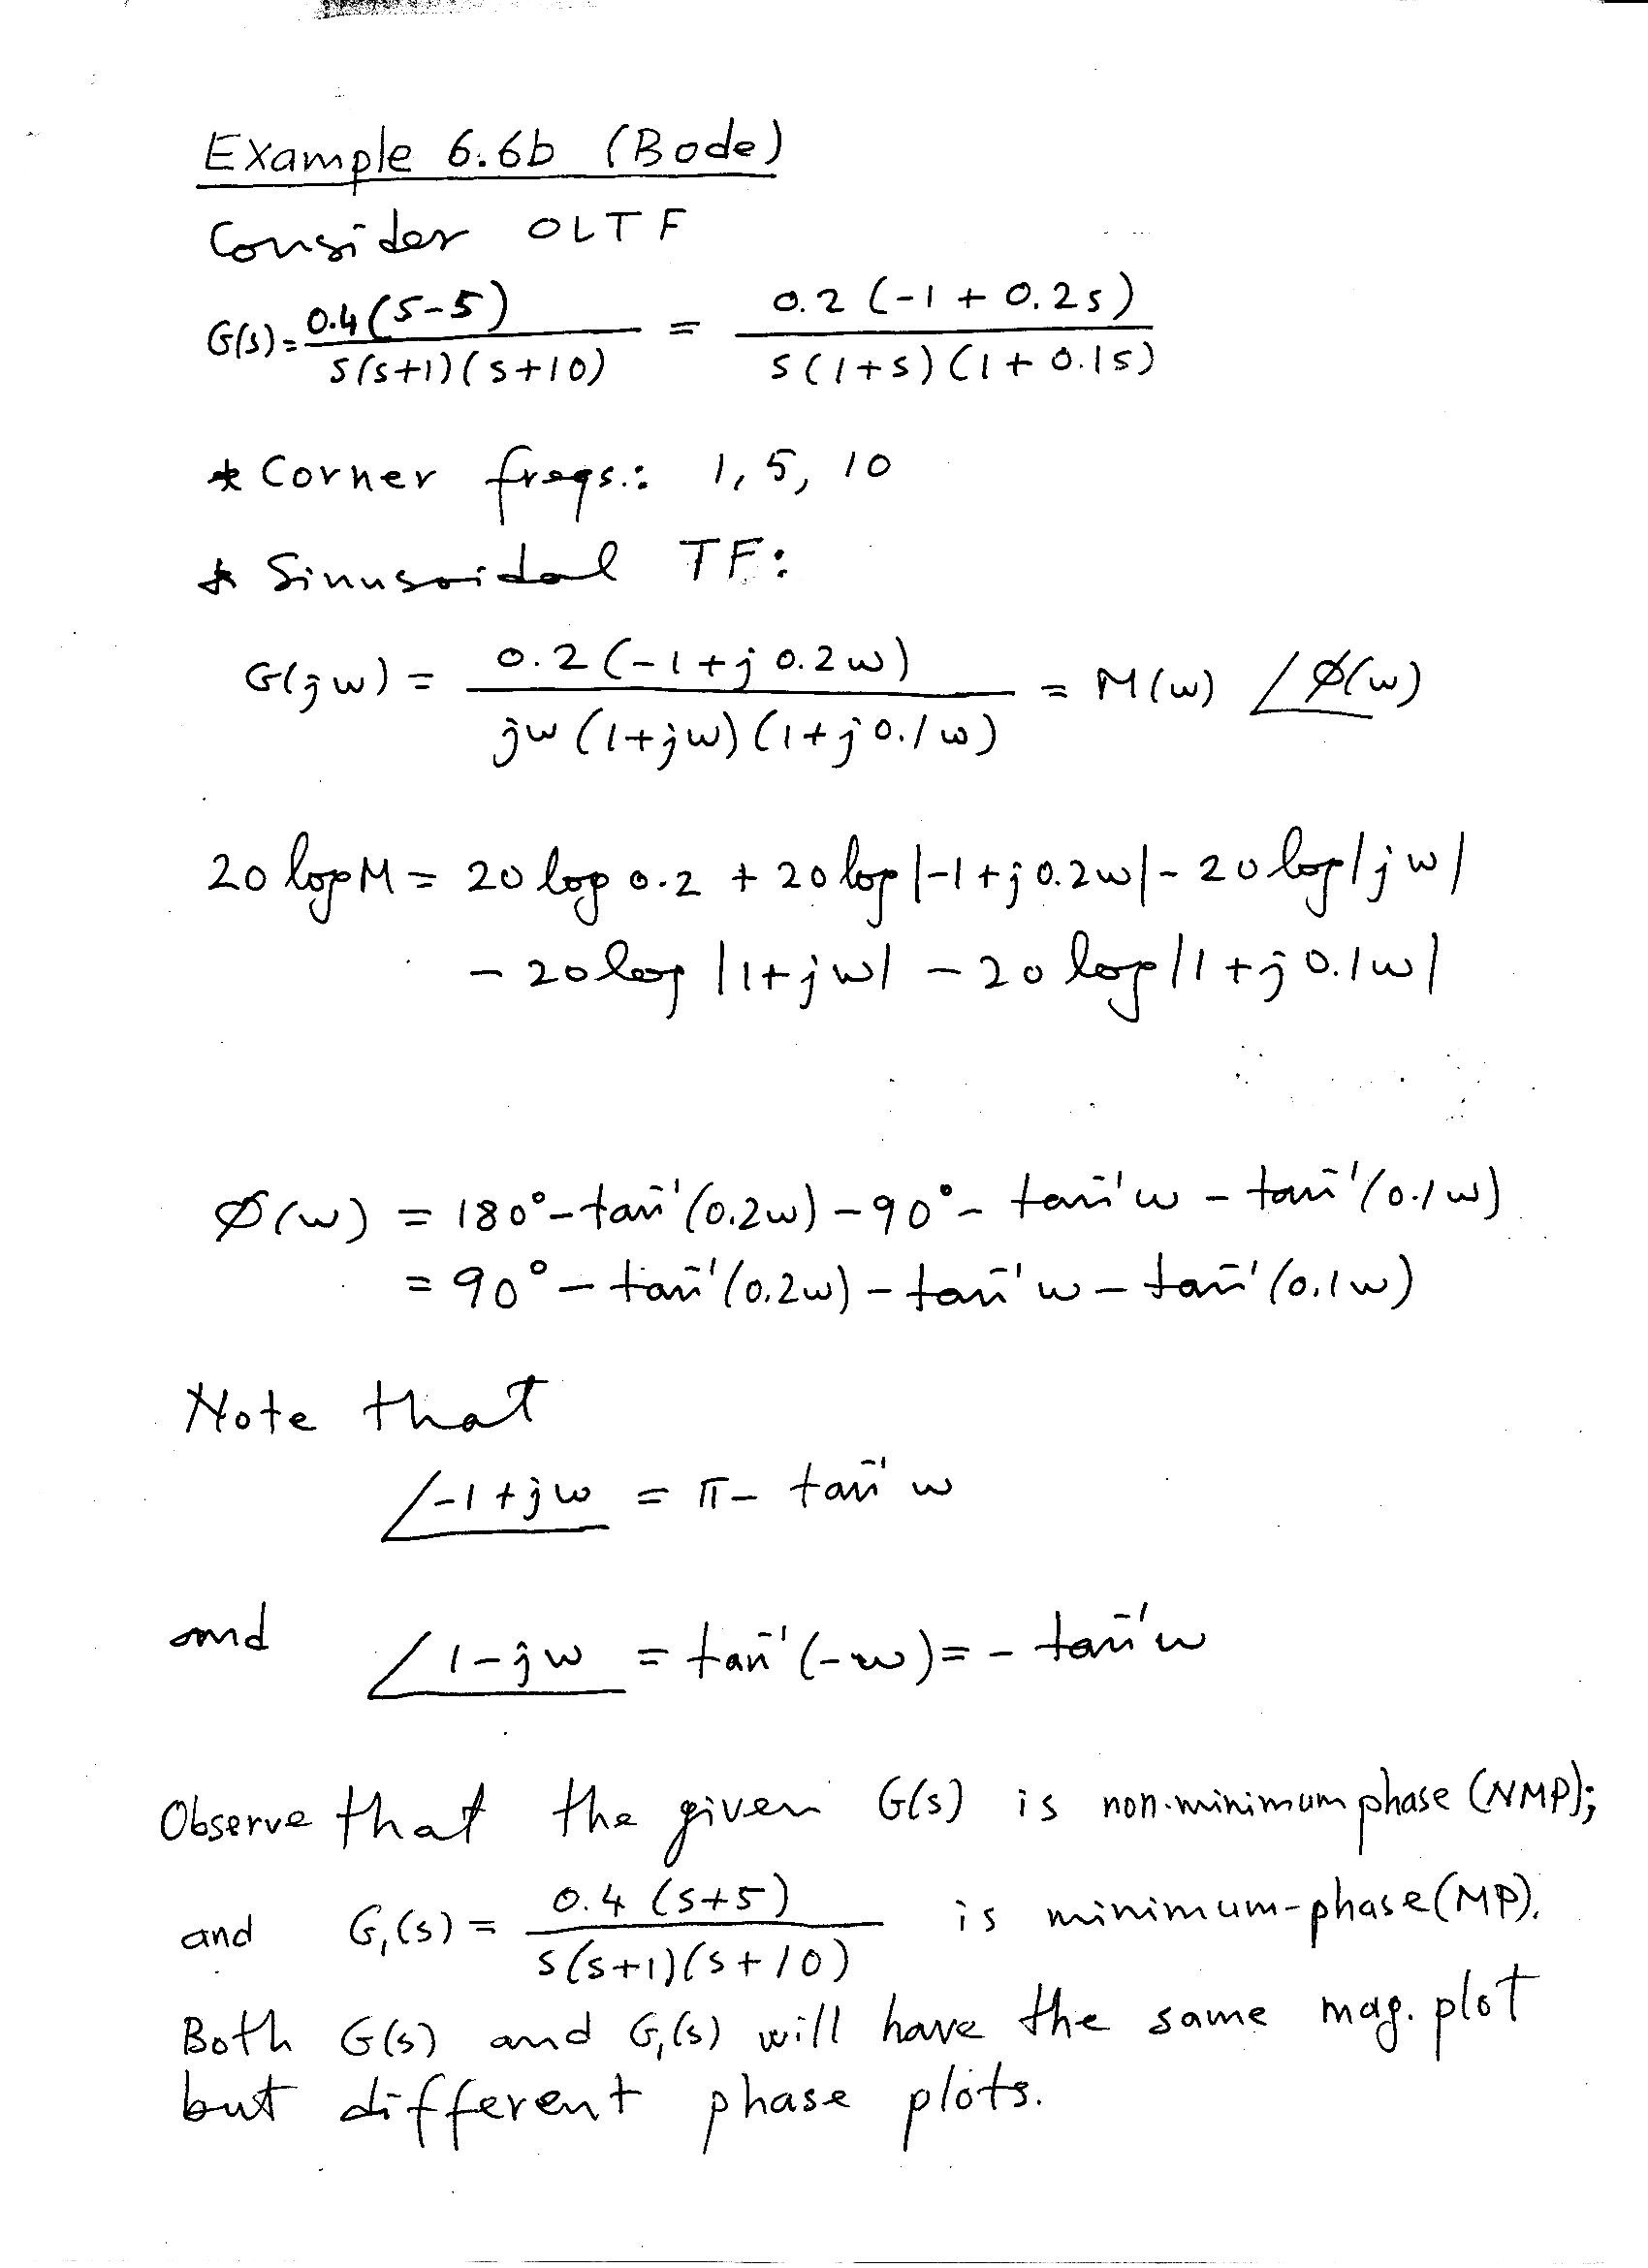 Example 6.6b (Bode)
Consider OLTF
G(s) = 0.4(s-5) / s(s+1)(s+10) = 0.2(-1 + 0.2s) / s(1+s)(1+0.1s)
* Corner freqs.: 1, 5, 10
* Sinusoidal TF:
G(jω) = 0.2(-1+j0.2ω) / jω(1+jω)(1+j0.1ω) = M(ω) ∠φ(ω)
20 log M = 20 log 0.2 + 20 log |-1+j0.2ω| - 20 log |jω|
- 20 log |1+jω| - 20 log |1+j0.1ω|
φ(ω) = 180° - tan⁻¹(0.2ω) - 90° - tan⁻¹ω - tan⁻¹(0.1ω)
= 90° - tan⁻¹(0.2ω) - tan⁻¹ω - tan⁻¹(0.1ω)
Note that
∠-1+jω = π - tan⁻¹ω
and ∠1-jω = tan⁻¹(-ω) = - tan⁻¹ω
Observe that the given G(s) is non-minimum phase (NMP);
and G₁(s) = 0.4(s+5) / s(s+1)(s+10) is minimum-phase (MP).
Both G(s) and G₁(s) will have the same mag. plot
but different phase plots.